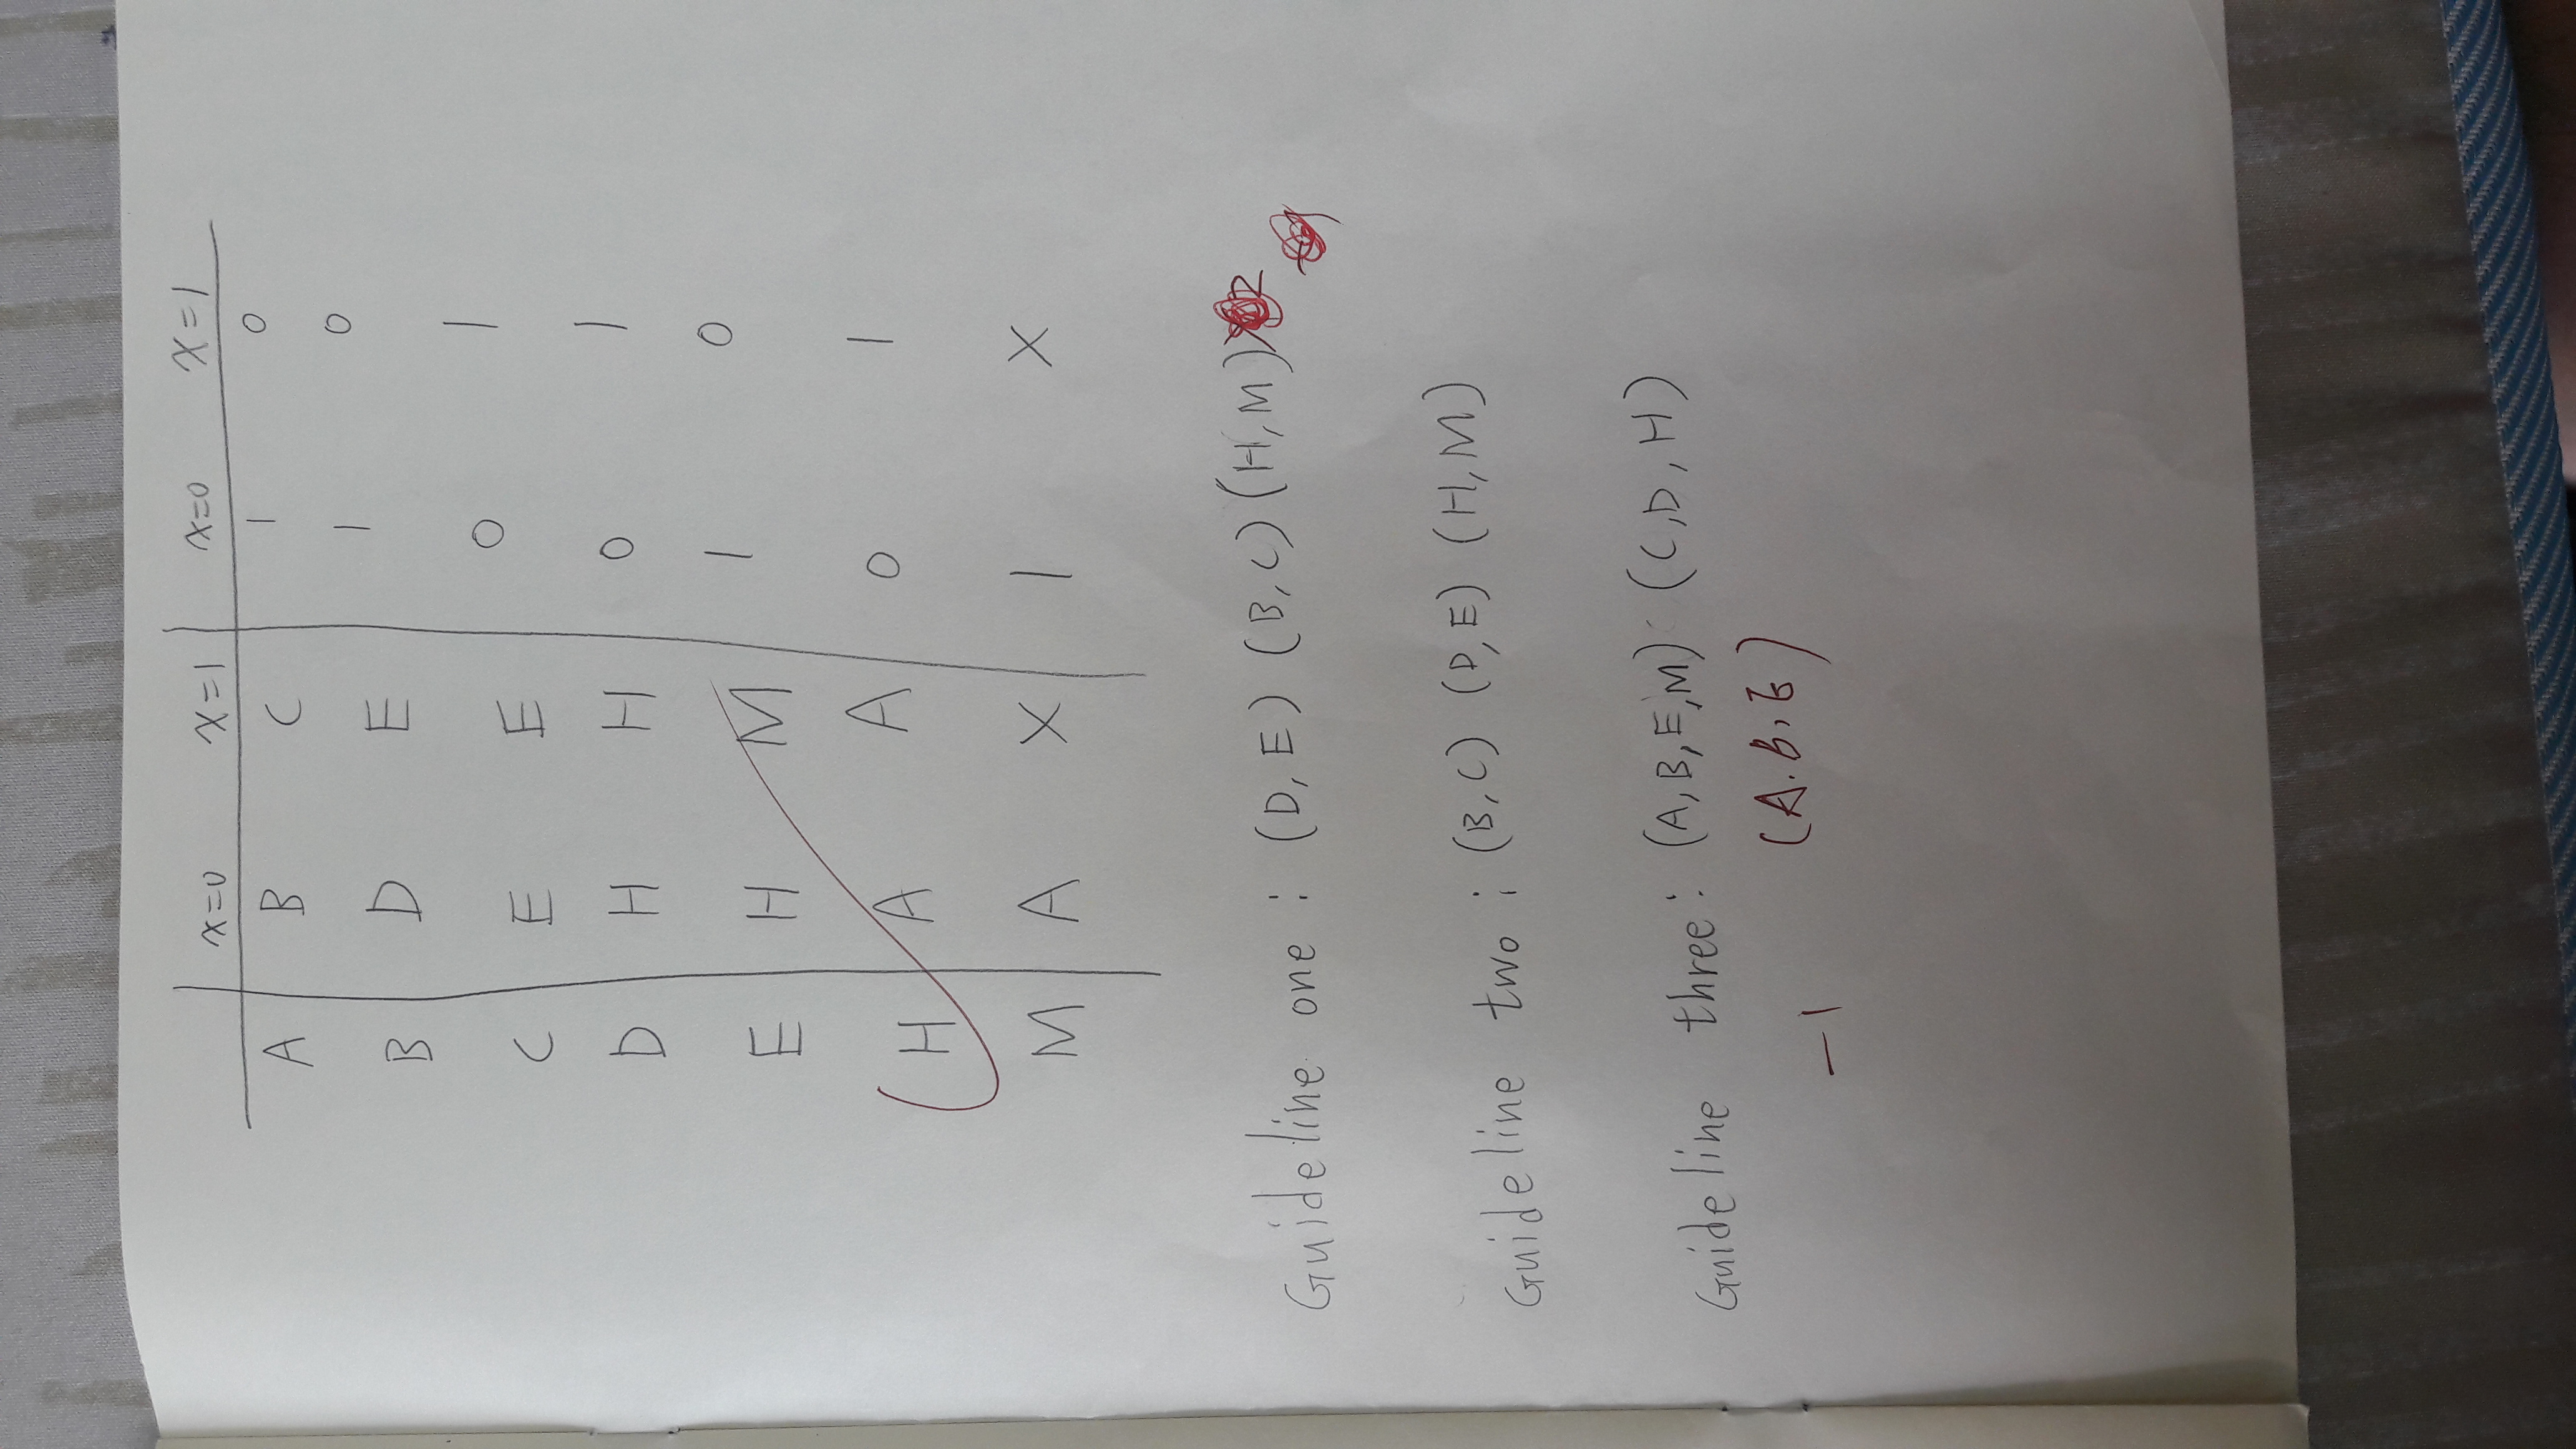 x=0 x=1 x=0 x=1
A B C 1 0
B D E 1 0
C E E 0 1
D H H 0 1
E H M 1 0
H A A 0 1
M A X 1 X
Guideline one : (D, E) (B, C) (H, M)
Guideline two : (B, C) (D, E) (H, M)
Guideline three : (A, B, E, M) (C, D, H)
(A. B, E)
-1